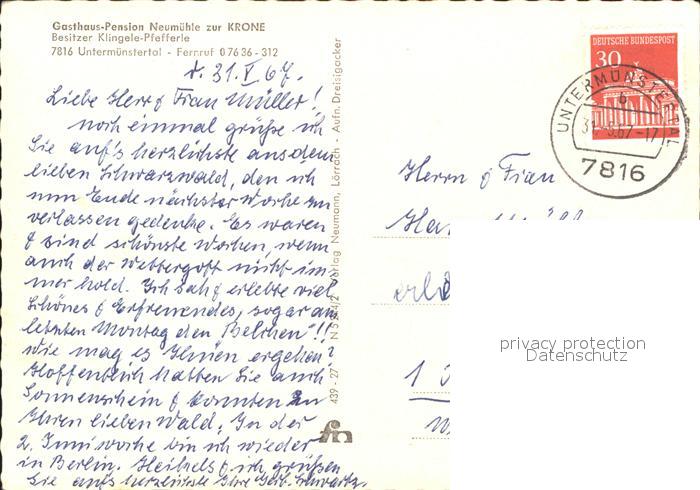 Gasthaus-Pension Neumühle zur KRONE
Besitzer Klingele-Pfefferle
7816 Untermünstertal - Fernruf 0 76 36 - 312
d. 31. V. 67.
Liebe Herr & Frau Müller!
noch einmal grüße ich
Sie auf's herzlichste aus dem
lieben Schwarzwald, den ich
nun Ende nächster Woche zu
verlassen gedenke. Es waren
& sind schönste Wochen, wenn
auch der Wettergott nicht im-
mer hold. Ich sah & erlebte viel
Schönes & Erfreuendes, sogar am
letzten Montag den "Belchen"!!
Wie mag es Ihnen ergehen?
Hoffentlich hatten Sie auch
Sonnenschein & konnten in
Ihren lieben Wald. In der
2. Juniwoche bin ich wieder
in Berlin. & ich grüßen
Sie aufs herzlichste Ihre
439 - 27 Verlag Neumann, Lörrach - Aufn. Dreisigacker
DEUTSCHE BUNDESPOST
30
UNTERMÜNSTERTAL
b
31.-5.67.-17
7816
Herrn & Frau
privacy protection
Datenschutz